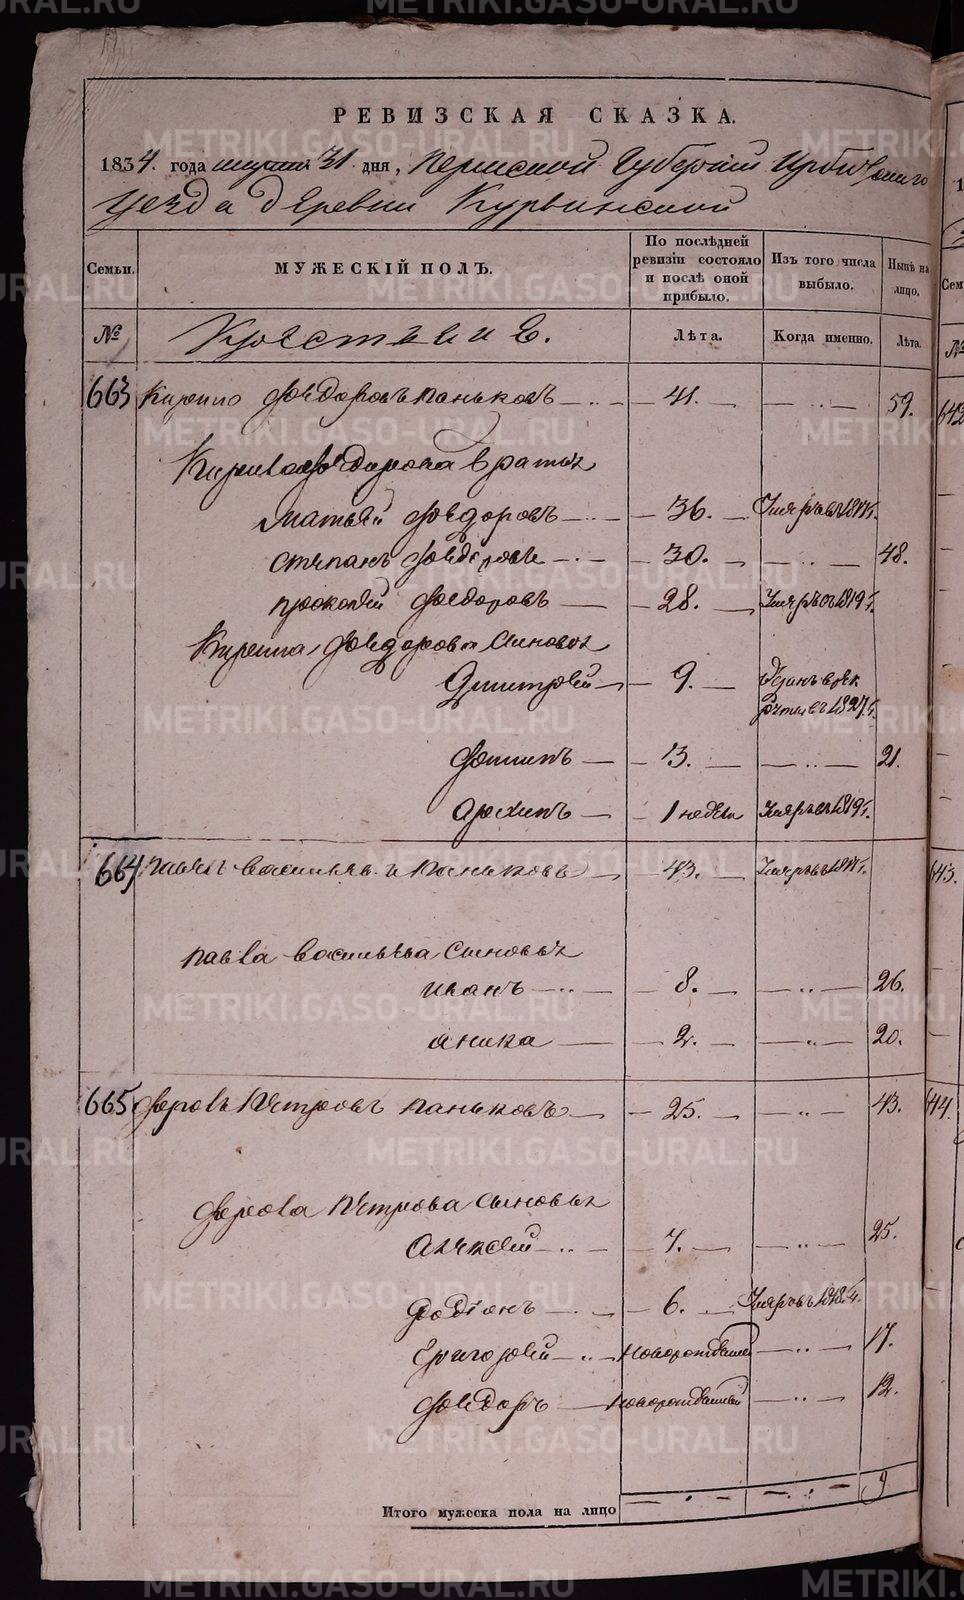 РЕВИЗСКАЯ СКАЗКА.
1834. года марта 31. дня, Пермской Губерніи Ирбитскаго
Уезда деревни Курьинской
Семьи. МУЖЕСКІЙ ПОЛЪ. По последней ревизіи состояло и послѣ оной прибыло. Изъ того числа выбыло. Нынѣ на лицо.
№ Крестьяне. Лѣта. Когда именно. Лѣта.
663 Кирило Федоровъ Паньковъ 41. 59.
Кирила Федорова братья
Матвей Федоровъ 36.
Степанъ Федоровъ 30. 48.
Прокопей Федоровъ 28. Умеръ въ 1819 г.
Кирила Федорова сыновья
Дмитрей 9. 1827 г.
Фотипъ 3. 21.
Архипъ 1 недели Умеръ въ 1819 г.
664 Павелъ Васильевъ Паньковъ 43.
Павла Васильева сыновья
Иванъ 8. 26.
Аника 2. 20.
665 Фролъ Петровъ Паньковъ 25. 43.
Фрола Петрова сыновья
Алексей 7. 25.
Родіонъ 6. Умеръ въ 1818 г.
Григорей новорожденный 17.
Федоръ новорожденный 12.
Итого мужеска пола на лицо 9
642
643.
644.
METRIKI.GASO-URAL.RU